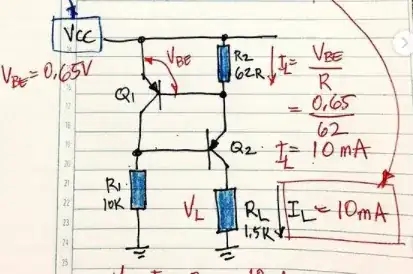 VCC
VBE = 0,65V
VBE
R2
62R
IL = VBE
R
= 0,65
62
IL = 10mA
Q1
Q2
R1
10K
VL
RL
1.5R
IL = 10mA